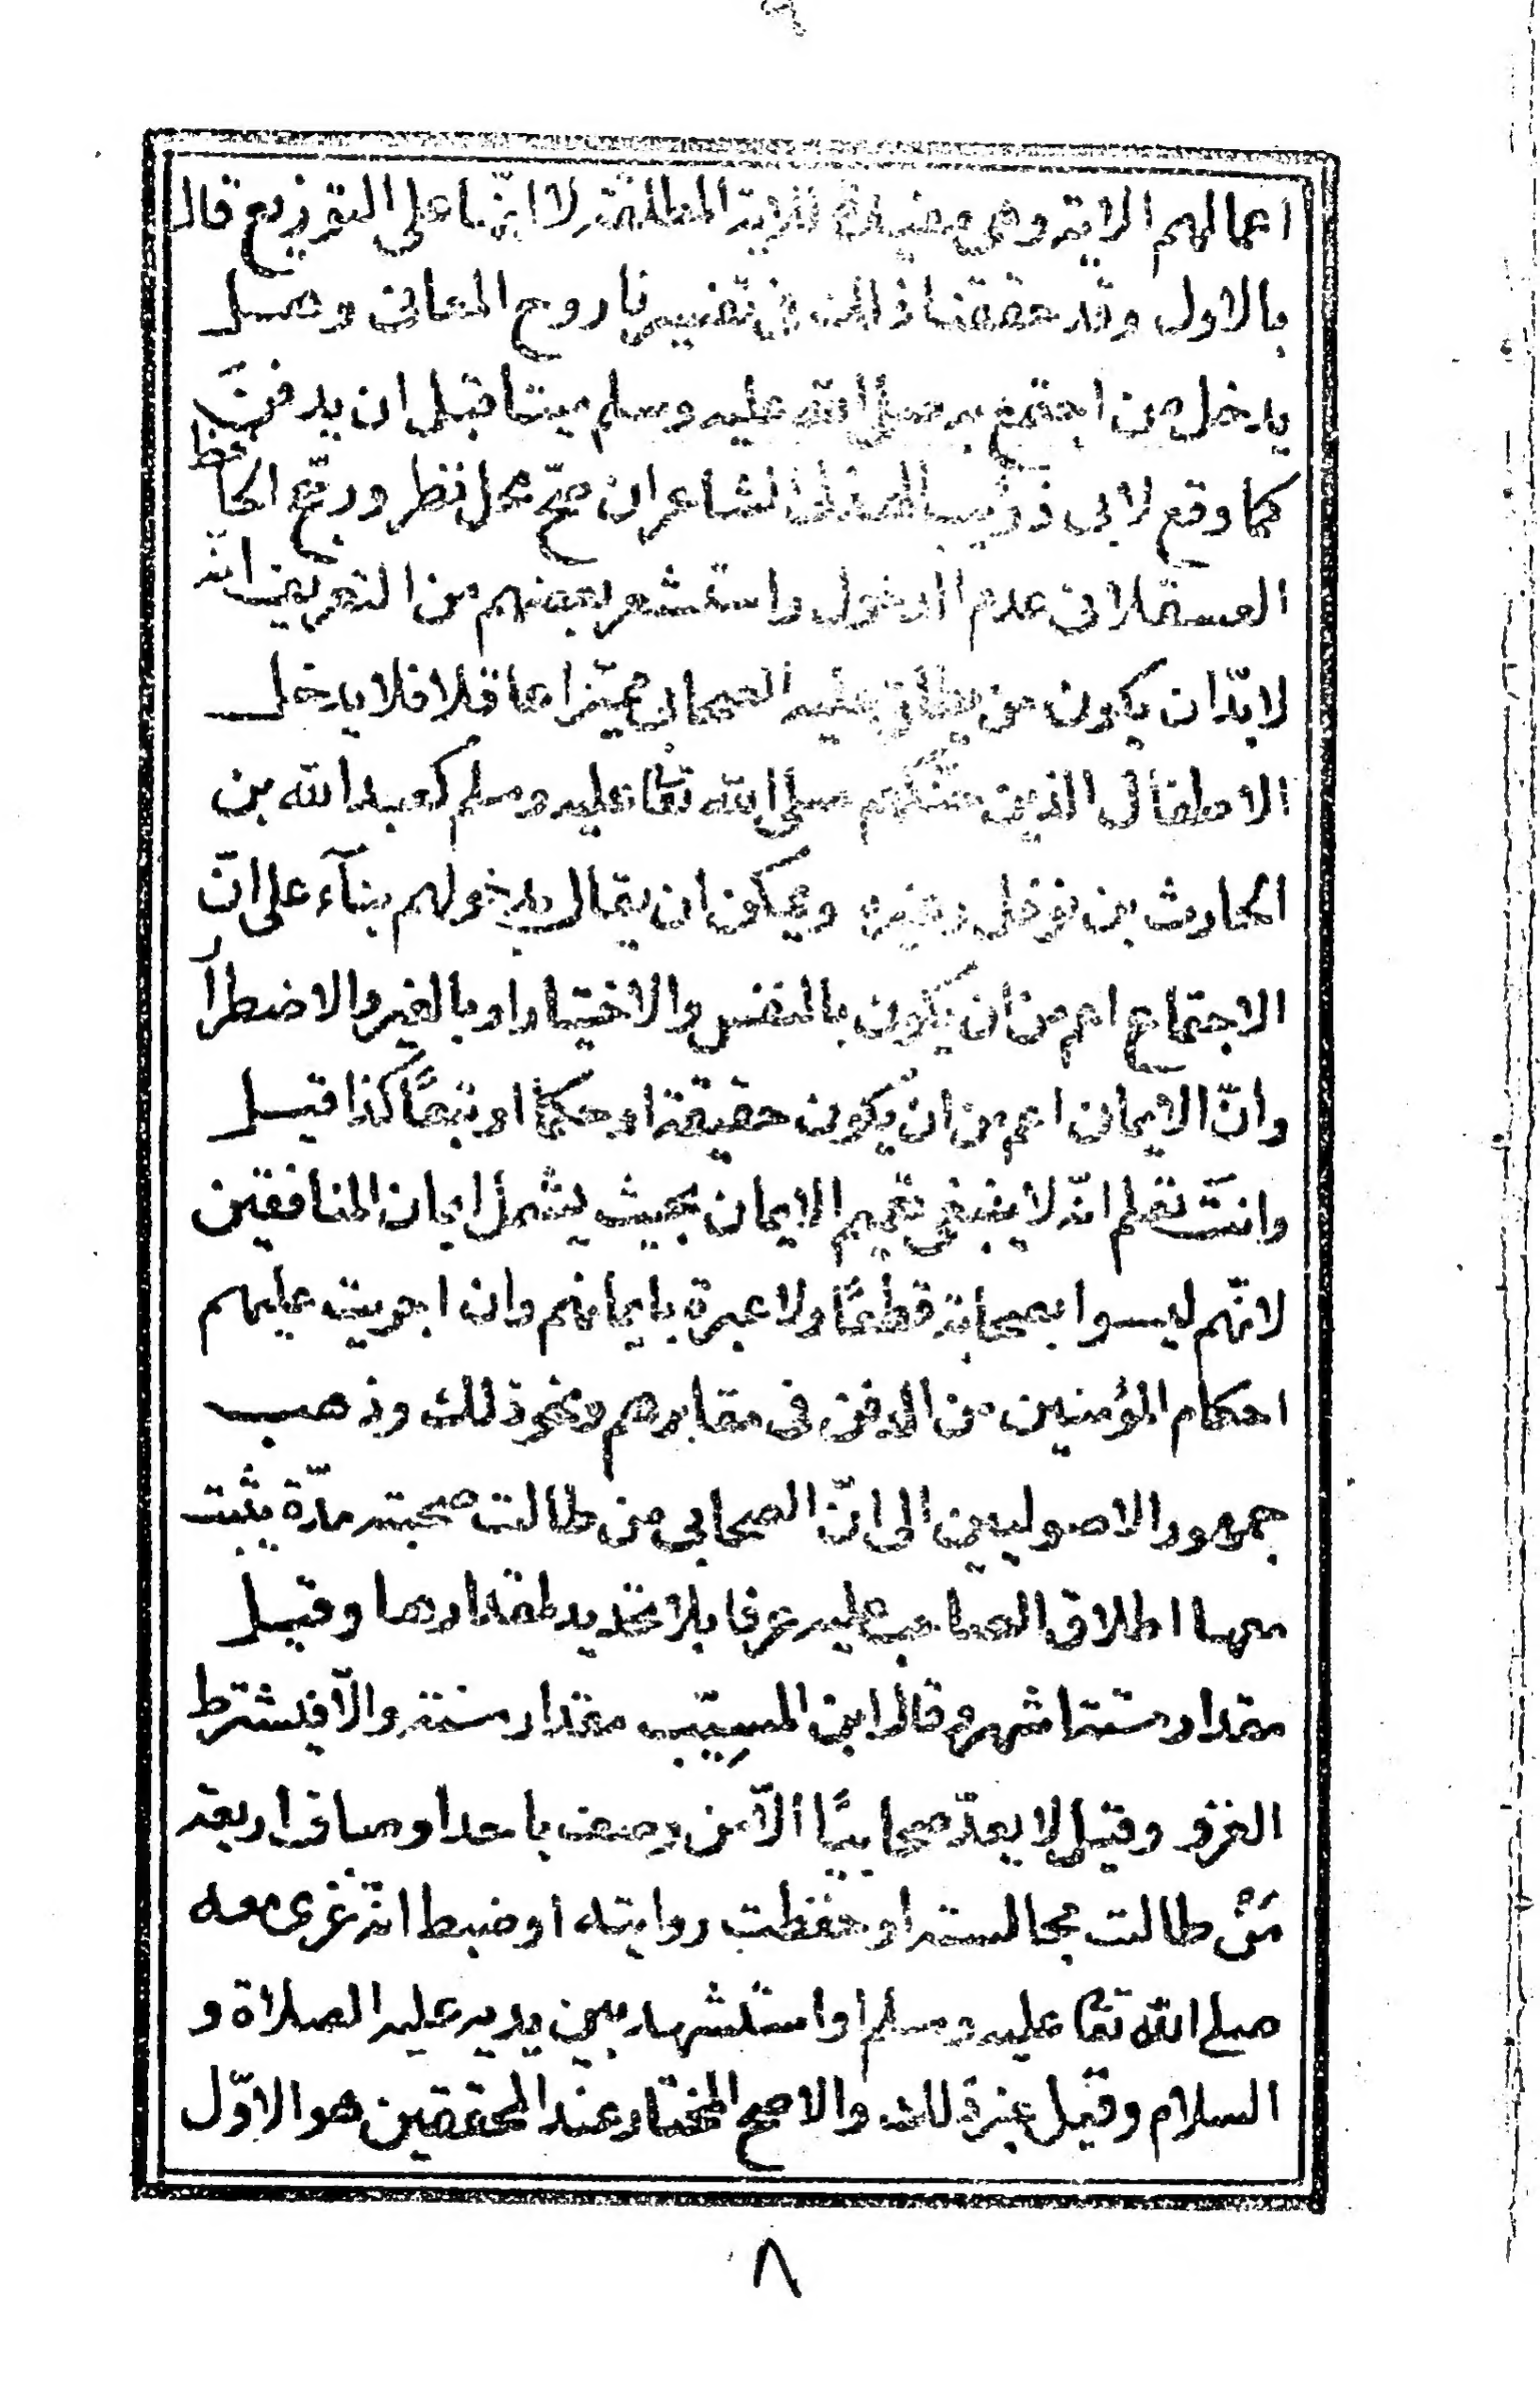 اعمالهم الاية وهى مقيدة للاية المطلقة لا انّها على التوزيع قال
بالاول وقد حققنا ذلك فى تفسيرنا روح المعانى وهل
يدخل من اجتمع به صلى الله عليه وسلم ميتا قبل ان يدفنَ
كما وقع لابى ذؤيب الهذلى الشاعر ان صحّ محل نظر ورجّح الحافظ
العسقلانى عدم الدخول واستشعر بعضهم من التعريف انّه
لابدّ ان يكون من يطلق عليه الصحابى مميّزا عاقلا فلا يدخل
الاطفال الذين حنّكهم صلى الله تعا عليه وسلم كعبد الله بن
الحارث بن نوفل وغيره ويمكن ان يقال بدخولهم بنآء على انّ
الاجتماع اعم من ان يكون بالنفس والاختيار او بالغير والاضطرار
وانّ الايمان اعم من ان يكون حقيقة او حكما او تبعًا كذا قيل
وانتَ تعلم انّه لا ينبغى تعميم الايمان بحيث يشمل ايمان المنافقين
لانّهم ليسوا بصحابة قطعًا ولا عبرة بايمانهم وان اجريت عليهم
احكام المؤمنين من الدفن فى مقابرهم ونحو ذلك وذهب
جمهور الاصوليين الى انّ الصحابى من طالت صحبته مدّة يثبت
معها اطلاق الصاحب عليه عرفا بلا تحديد لمقدارها وقيل
مقدار ستة اشهر وقال ابن المسيّب مقدار سنة والّا فيشترط
الغزو وقيل لا يعدّ صحابيًا الّا من وصف باحد اوصاف اربعة
مَنْ طالت مجالسته او حفظت روايته او ضبط انّه غزى معه
صلى الله تعا عليه وسلم او استشهد بين يديه عليه الصلاة و
السلام وقيل غير ذلك والاصح المختار عند المحققين هو الاوّل
٨